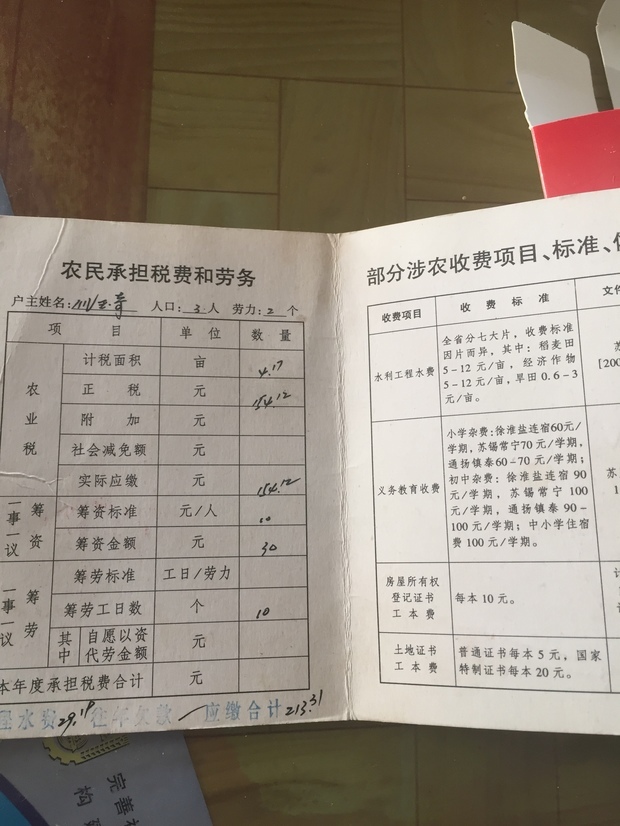 农民承担税费和劳务
户主姓名: 人口:3人 劳力:2个
项目 单位 数量
农业税
计税面积 亩 4.17
正税 元 154.12
附加 元
社会减免额 元
实际应缴 元 154.12
一事一议筹资
筹资标准 元/人 10
筹资金额 元 30
一事一议筹劳
筹劳标准 工日/劳力
筹劳工日数 个 10
其中 自愿以资代劳金额 元
本年度承担税费合计 元
水费29.19 往年欠款 — 应缴合计213.31
部分涉农收费项目、标准、
收费项目 收费标准 文件
水利工程水费
全省分七大片,收费标准
因片而异,其中:稻麦田
5-12元/亩,经济作物
5-12元/亩,旱田0.6-3
元/亩。
苏
[200
义务教育收费
小学杂费:徐淮盐连宿60元/
学期,苏锡常宁70元/学期,
通扬镇泰60-70元/学期;
初中杂费:徐淮盐连宿90
元/学期,苏锡常宁100
元/学期,通扬镇泰90-
100元/学期;中小学住宿
费100元/学期。
苏
房屋所有权
登记证书
工本费
每本10元。
土地证书
工本费
普通证书每本5元,国家
特制证书每本20元。
完善
构